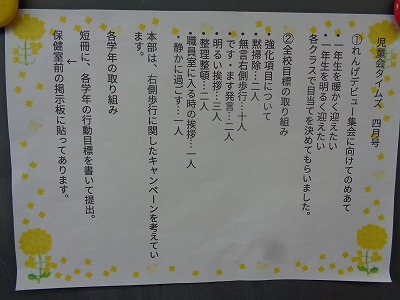 児童会タイムズ　四月号
①れんげデビュー集会に向けてのめあて
・一年生を暖かく迎えたい
・一年生を明るく迎えたい
各クラスで目当てを決めてもらいました。
②全校目標の取り組み
・強化項目について
黙掃除…二人
無言右側歩行…十人
・です・ます発言…二人
・明るい挨拶…三人
整理整頓…二人
・職員室に入る時の挨拶…一人
・静かに過ごす…一人
本部は、右側歩行に関したキャンペーンを考えてい
ます。
各学年の取り組み
短冊に、各学年の行動目標を書いて提出。
↓
保健室前の掲示板に貼ってあります。